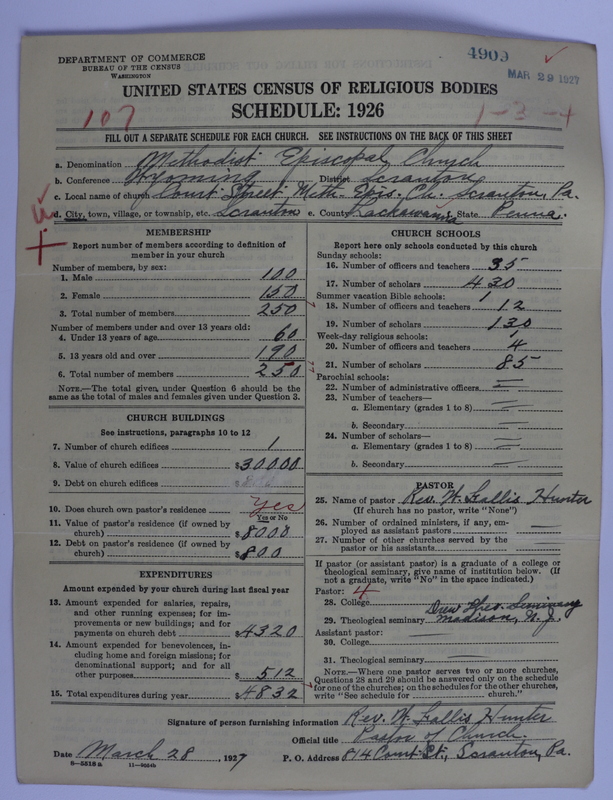 4909
MAR 29 1927
DEPARTMENT OF COMMERCE
BUREAU OF THE CENSUS
WASHINGTON
UNITED STATES CENSUS OF RELIGIOUS BODIES
SCHEDULE: 1926
107
1-3-4
FILL OUT A SEPARATE SCHEDULE FOR EACH CHURCH. SEE INSTRUCTIONS ON THE BACK OF THIS SHEET
a. Denomination Methodist Episcopal Church
b. Conference Wyoming District Scranton
c. Local name of church Court Street Meth. Epis. Ch. Scranton, Pa.
d. City, town, village, or township, etc. Scranton e. County Lackawanna State Penna.
MEMBERSHIP
Report number of members according to definition of member in your church
Number of members, by sex:
1. Male 100
2. Female 150
3. Total number of members 250
Number of members under and over 13 years old:
4. Under 13 years of age 60
5. 13 years old and over 190
6. Total number of members 250
NOTE.—The total given under Question 6 should be
same as the total of males and females given under Question 3.
CHURCH BUILDINGS
See instructions, paragraphs 10 to 12
7. Number of church edifices 1
8. Value of church edifices $30000
9. Debt on church edifices $
10. Does church own pastor's residence Yes
Yes or No
11. Value of pastor's residence (if owned by
church) $8000
12. Debt on pastor's residence (if owned by
church) $800
EXPENDITURES
Amount expended by your church during last fiscal year
13. Amount expended for salaries, repairs,
and other running expenses; for im-
provements or new buildings; and for
payments on church debt $4320
14. Amount expended for benevolences, in-
cluding home and foreign missions; for
denominational support; and for all
other purposes $512
15. Total expenditures during year $4832
CHURCH SCHOOLS
Report here only schools conducted by this church
Sunday schools:
16. Number of officers and teachers 35
17. Number of scholars 430
Summer vacation Bible schools: 1
18. Number of officers and teachers 12
19. Number of scholars 130
Week-day religious schools: 1
20. Number of officers and teachers 4
21. Number of scholars 85
Parochial schools:
22. Number of administrative officers
23. Number of teachers—
a. Elementary (grades 1 to 8)
b. Secondary
24. Number of scholars—
a. Elementary (grades 1 to 8)
b. Secondary
PASTOR
25. Name of pastor Rev. W. Gallis Hunter
(If church has no pastor, write "None")
26. Number of ordained ministers, if any, em-
ployed as assistant pastors
27. Number of other churches served by the
pastor or his assistants
If pastor (or assistant pastor) is a graduate of a college or
theological seminary, give name of institution below. (If
not a graduate, write "No" in the space indicated.)
Pastor: 4
28. College
29. Theological seminary Drew Theo. Seminary
Madison, N. J.
Assistant pastor:
30. College
31. Theological seminary
NOTE.—Where one pastor serves two or more churches,
Questions 28 and 29 should be answered only on the schedule
for one of the churches; on the schedules for the other churches,
write "See schedule for church."
Signature of person furnishing information Rev. W. Gallis Hunter
Official title Pastor of Church.
Date March 28, 1927 P. O. Address 814 Court St., Scranton, Pa.
8-5518a 11-9524b